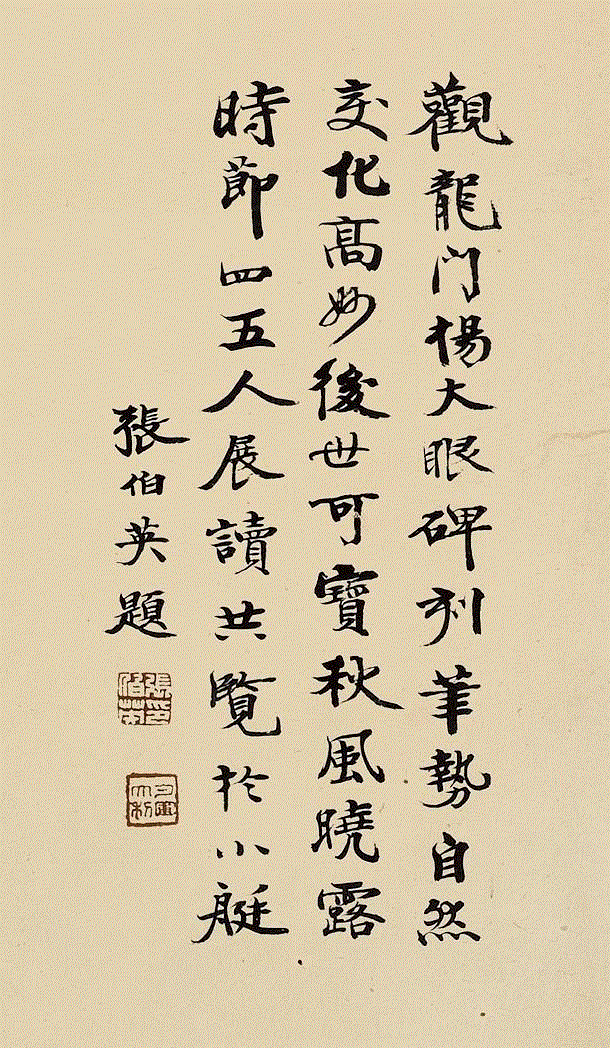 觀龍門楊大眼碑刻筆勢自然
變化高妙後世可寶秋風曉露
時節四五人展讀共覽於小艇
張伯英題
張印伯英